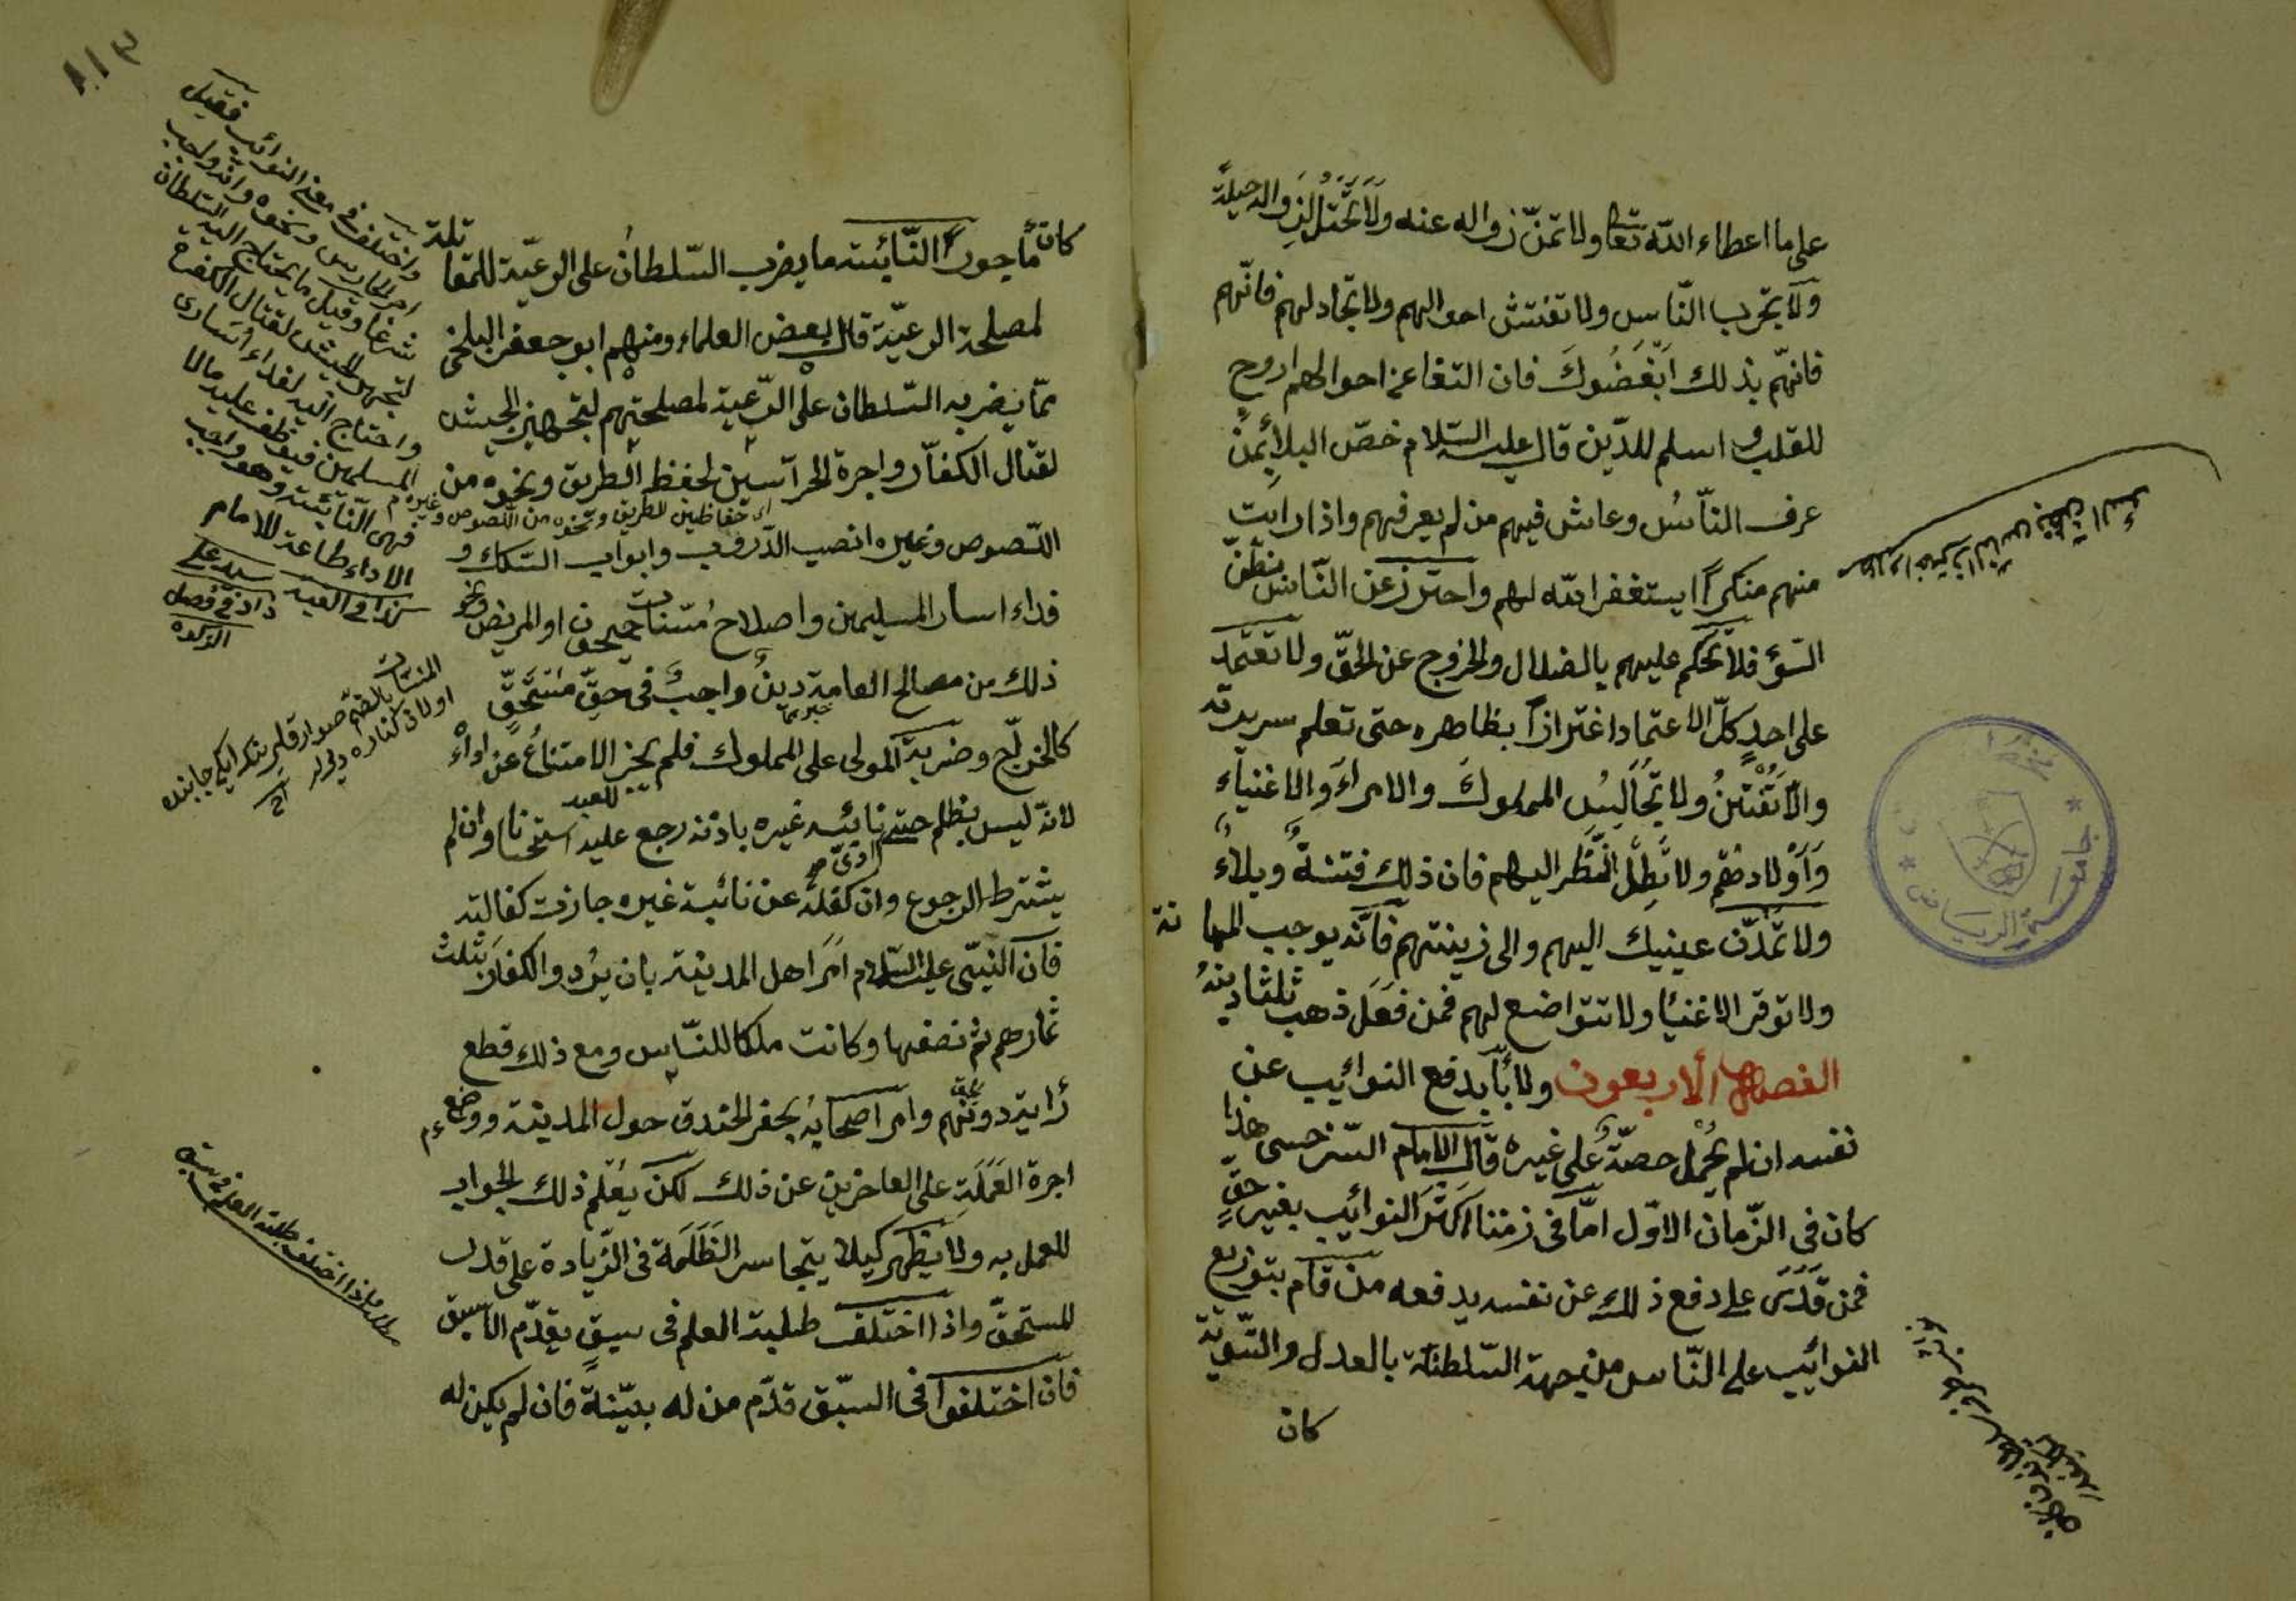 على ما اعطاء الله تعالى ولا تمنّ زواله عنه ولا تحتل لزواله حيلة
ولا تجرب النّاس ولا تفتش احوالهم ولا تجادلهم فانّهم
فانهّم بذلك ابغضوك فان التغا عن احوالهم اروح
للقلب و اسلم للدّين قال عليه السّلام خصّ البلاء بمن
عرف النّاس وعاش فيهم من لم يعرفهم واذا رايت
منهم منكرا يستغفر الله لهم واحترز عن النّاس بظنّ
السّؤ فلا تحكم عليهم بالضلال والخروج عن الحقّ ولا تعتمد
على احدٍ كلّ الاعتماد اغترارًا بظاهره حتى تعلم سريرته
والّا تفتتن ولا تجاليس المملوك والامراء والاغنياء
واولادهم ولا تطل النّظر اليهم فان ذلك فتنة وبلاء
ولا تمدّن عينيك اليهم والى زينتهم فانّه يوجب المهانة
ولا توقر الاغنيا ولا تتواضع لهم فمن فعل ذهب ثلثا دينه
الفصل الاربعون ولا بأبد فع النوائيب عن
نفسه ان لم يحمل حصّة على غيره قال الامام السّرخسى هذا
كان فى الزّمان الاوّل امّا فى زمننا اكثر النوائيب بغير حقّ
فمن قدرى على دفع ذلك عن نفسه يدفعه من قام بتوزيع
النوائيب على النّاس من جهة السّلطنة بالعدل والتّسوية
كان
جامعة الرياض
كان مأجورا النّائبته ما يضرب السّلطان على الرعيّة للمقاتلة
لمصلحة الرعيّة قال بعض العلماء ومنهم ابو جعفر البلخى
ممّا يضربه السّلطان على الرّعية لمصلحتهم لتجهيز الجيش
لقتال الكفاّر واجرة الحرآسين لحفظ الطريق ونحوه من
اى حفاظين للطريق ونحوه من اللصوص وغيره م
اللّصوص وغيره انصيب الدّروب وابواب السّكك و
فداء اسار المسليمين واصلاح مسنات جيحون او المريض ونحو
ذلك من مصالح العامة دين واجب فى حقّ مستحقّ
كالخراّج وضريبة المولى على المملوك فلم يجز الامتناع عن اداء
لانّه ليس بظلم حتى نائبه غيره باذنه رجع عليه استحسانا وان لم
يشترط الرجوع وان كفله عن نائبة غيره جازت كفالته
فان النبّى عليه السّلام امر اهل المدينة بان يؤدوا الكفار بثلث
ثمارهم ثم نصفها وكانت ملكا للنّاس ومع ذلك قطع
رأيته دونهم وامر اصحابه بحفر الخندق حول المدينة ووضع
اجرة العملة على العاجزين عن ذلك لكن يعلم ذلك الجواب
للعمل به ولا يظهر كيلا يتجاسر الظلمة فى الزّيادة على قدر
المستحقّ واذا اختلف طلبة العلم فى سبق يقدّم الاسبق
فان اختلفوا فى السبّق قدّم من له بيّنة فان لم يكن له
واختلف فى معنى النوائب فقيل
اجر الحارس ونحوه وانه واجب
شرعا وقيل ما يحتاج اليه السّلطان
لتجهيز الجيش لقتال الكفرة
واحتاج اليه لفداء اسارى
المسلمين فيوظف عليه مالا
فهى النّائبة وهو واجب
الاداء طاعة للامام